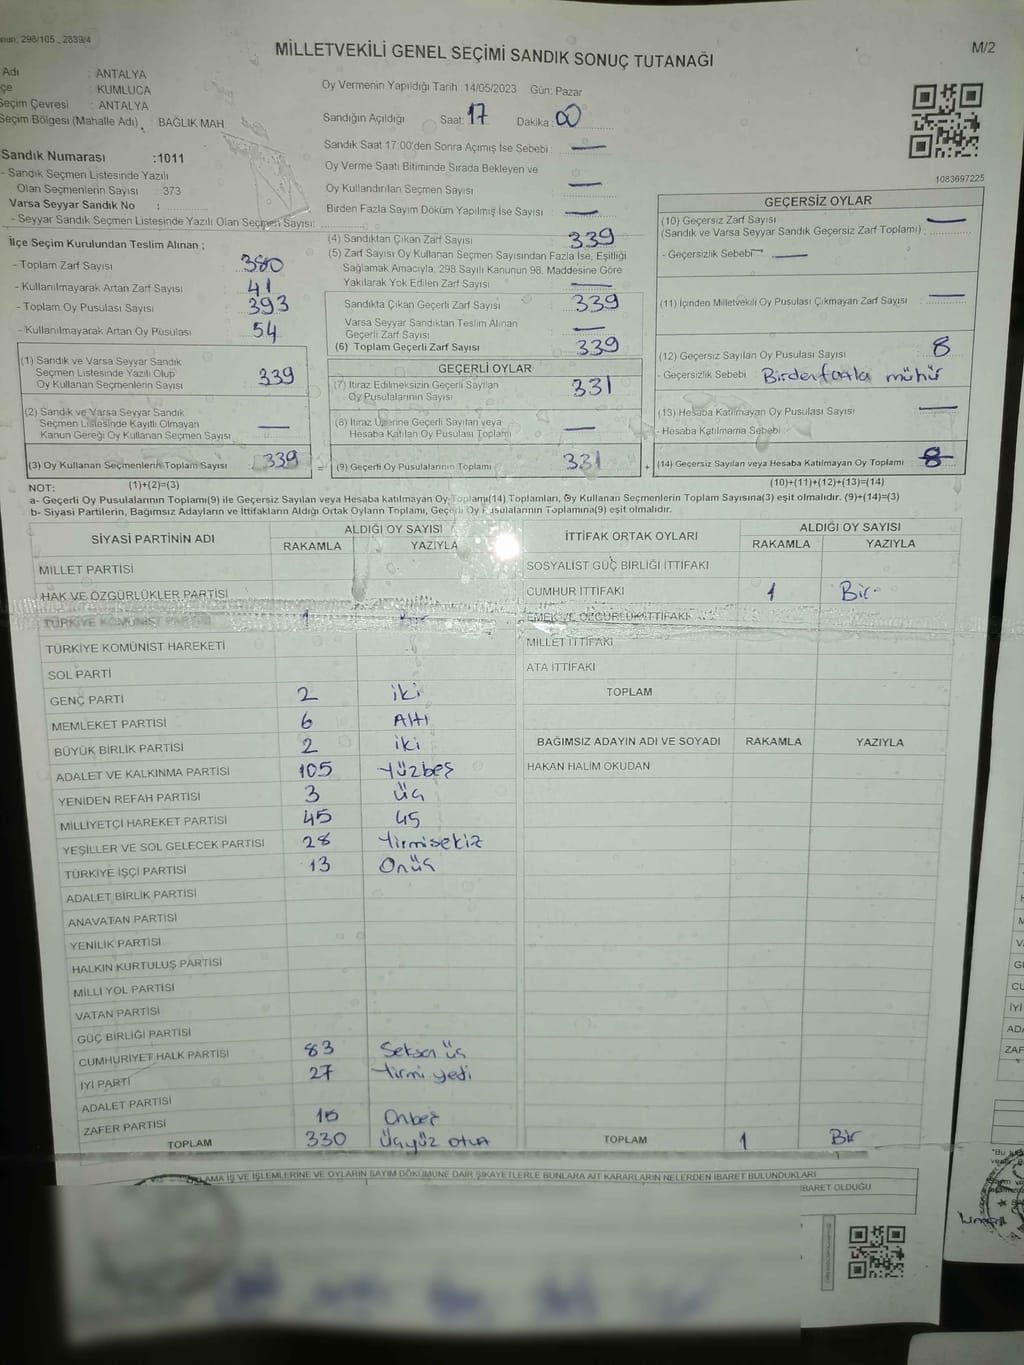 298/105 , 2839/4
MİLLETVEKİLİ GENEL SEÇİMİ SANDIK SONUÇ TUTANAĞI
M/2
Adı : ANTALYA
KUMLUCA
Seçim Çevresi : ANTALYA
Seçim Bölgesi (Mahalle Adı) BAĞLIK MAH
Oy Vermenin Yapıldığı Tarih: 14/05/2023 Gün: Pazar
Sandığın Açıldığı Saat: 17 Dakika: 00
Sandık Saat 17:00'den Sonra Açılmış İse Sebebi : —
Oy Verme Saati Bitiminde Sırada Bekleyen ve
Oy Kullandırılan Seçmen Sayısı —
Birden Fazla Sayım Döküm Yapılmış İse Sayısı : —
1083697225
Sandık Numarası :1011
- Sandık Seçmen Listesinde Yazılı
Olan Seçmenlerin Sayısı : 373
Varsa Seyyar Sandık No :
- Seyyar Sandık Seçmen Listesinde Yazılı Olan Seçmen Sayısı:
İlçe Seçim Kurulundan Teslim Alınan ;
- Toplam Zarf Sayısı 380
- Kullanılmayarak Artan Zarf Sayısı 41
- Toplam Oy Pusulası Sayısı 393
- Kullanılmayarak Artan Oy Pusulası 54
(1) Sandık ve Varsa Seyyar Sandık
Seçmen Listesinde Yazılı Olup
Oy Kullanan Seçmenlerin Sayısı 339
(2) Sandık ve Varsa Seyyar Sandık
Seçmen Listesinde Kayıtlı Olmayan
Kanun Gereği Oy Kullanan Seçmen Sayısı —
(3) Oy Kullanan Seçmenlerin Toplam Sayısı 339 =
(1)+(2)=(3)
(4) Sandıktan Çıkan Zarf Sayısı 339
(5) Zarf Sayısı Oy Kullanan Seçmen Sayısından Fazla İse, Eşitliği
Sağlamak Amacıyla; 298 Sayılı Kanunun 98. Maddesine Göre
Yakılarak Yok Edilen Zarf Sayısı —
Sandıkta Çıkan Geçerli Zarf Sayısı 339
Varsa Seyyar Sandıktan Teslim Alınan
Geçerli Zarf Sayısı —
(6) Toplam Geçerli Zarf Sayısı 339
GEÇERLİ OYLAR
(7) İtiraz Edilmeksizin Geçerli Sayılan
Oy Pusulalarının Sayısı 331
(8) İtiraz Üzerine Geçerli Sayılan veya
Hesaba Katılan Oy Pusulası Toplamı —
(9) Geçerli Oy Pusulalarının Toplamı 331 +
GEÇERSİZ OYLAR
(10) Geçersiz Zarf Sayısı —
(Sandık ve Varsa Seyyar Sandık Geçersiz Zarf Toplamı) :
- Geçersizlik Sebebi —
(11) İçinden Milletvekili Oy Pusulası Çıkmayan Zarf Sayısı —
(12) Geçersiz Sayılan Oy Pusulası Sayısı 8
- Geçersizlik Sebebi Birden fazla mühür
(13) Hesaba Katılmayan Oy Pusulası Sayısı —
- Hesaba Katılmama Sebebi
(14) Geçersiz Sayılan veya Hesaba Katılmayan Oy Toplamı 8
(10)+(11)+(12)+(13)=(14)
NOT:
a- Geçerli Oy Pusulalarının Toplamı(9) ile Geçersiz Sayılan veya Hesaba katılmayan Oy Toplamı(14) Toplamları, Oy Kullanan Seçmenlerin Toplam Sayısına(3) eşit olmalıdır. (9)+(14)=(3)
b- Siyasi Partilerin, Bağımsız Adayların ve İttifakların Aldığı Ortak Oyların Toplamı, Geçerli Oy Pusulalarının Toplamına(9) eşit olmalıdır.
SİYASİ PARTİNİN ADI ALDIĞI OY SAYISI
RAKAMLA YAZIYLA
MİLLET PARTİSİ
HAK VE ÖZGÜRLÜKLER PARTİSİ
TÜRKİYE KOMÜNİST PARTİSİ 1 Bir
TÜRKİYE KOMÜNİST HAREKETİ
SOL PARTİ
GENÇ PARTİ 2 iki
MEMLEKET PARTİSİ 6 Altı
BÜYÜK BİRLİK PARTİSİ 2 iki
ADALET VE KALKINMA PARTİSİ 105 Yüzbeş
YENİDEN REFAH PARTİSİ 3 Üç
MİLLİYETÇİ HAREKET PARTİSİ 45 45
YEŞİLLER VE SOL GELECEK PARTİSİ 28 Yirmisekiz
TÜRKİYE İŞÇİ PARTİSİ 13 Onüç
ADALET BİRLİK PARTİSİ
ANAVATAN PARTİSİ
YENİLİK PARTİSİ
HALKIN KURTULUŞ PARTİSİ
MİLLİ YOL PARTİSİ
VATAN PARTİSİ
GÜÇ BİRLİĞİ PARTİSİ
CUMHURİYET HALK PARTİSİ 83 Seksen üç
İYİ PARTİ 27 Yirmi yedi
ADALET PARTİSİ
ZAFER PARTİSİ 15 Onbeş
TOPLAM 330 Üçyüz otuz
İTTİFAK ORTAK OYLARI ALDIĞI OY SAYISI
RAKAMLA YAZIYLA
SOSYALİST GÜÇ BİRLİĞİ İTTİFAKI
CUMHUR İTTİFAKI 1 Bir
EMEK VE ÖZGÜRLÜK İTTİFAKI
MİLLET İTTİFAKI
ATA İTTİFAKI
TOPLAM
BAĞIMSIZ ADAYIN ADI VE SOYADI RAKAMLA YAZIYLA
HAKAN HALİM OKUDAN
TOPLAM 1 Bir
İŞ VE İŞLEMLERİNE VE OYLARIN SAYIM DÖKÜMÜNE DAİR ŞİKAYETLERLE BUNLARA AİT KARARLARIN NELERDEN İBARET BULUNDUKLARI
İBARET OLDUĞU